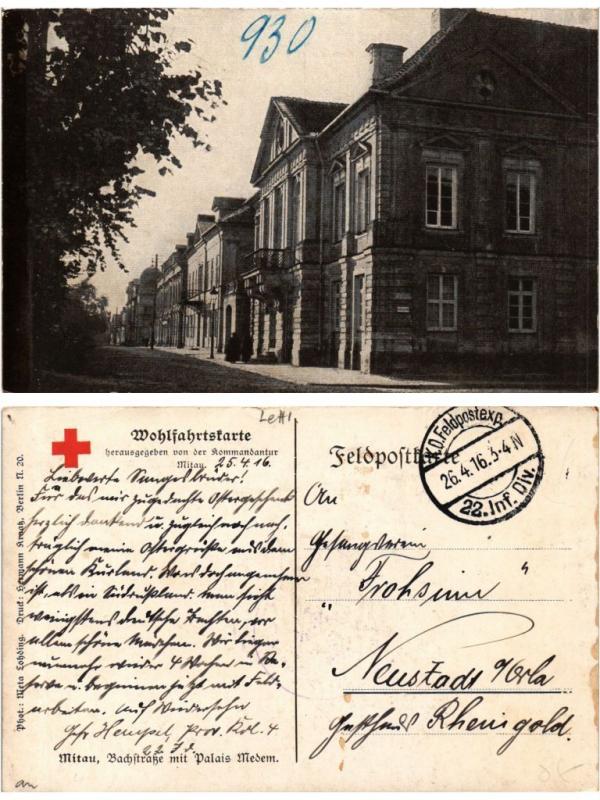 930
Letti
Wohlfahrtskarte
herausgegeben von der Kommandantur
Mitau. 25.4.16.
Liebwerte Sangesbrüder!
Für das mir zugedachte Ostergeschenk
herzlich dankend u. zugleich noch nach-
träglich meine Ostergrüße aus dem
schönen Kurland. Was doch angenehmer
ist, als in Südrußland. Man sieht
wenigstens deutsche Trachten, vor
allem schöne Mädchen. Wir liegen
nunmehr wieder 4 Wochen in Re-
serve u. beginnen jetzt mit Feld-
arbeiten. Auf Wiedersehn
Gefr. Hempel, Prov. Kol. 4
22 J.D.
Mitau, Bachstraße mit Palais Medem.
Phot.: Meta Lohding. Druck: Hermann Kratz, Berlin N. 20.
Feldpostkarte
K.D. Feldpostexp.
26.4.16. 3-4 N
22. Inf. Div.
An
Gesangverein
"Frohsinn"
Neustadt a/Orla
Gasthaus Rheingold.